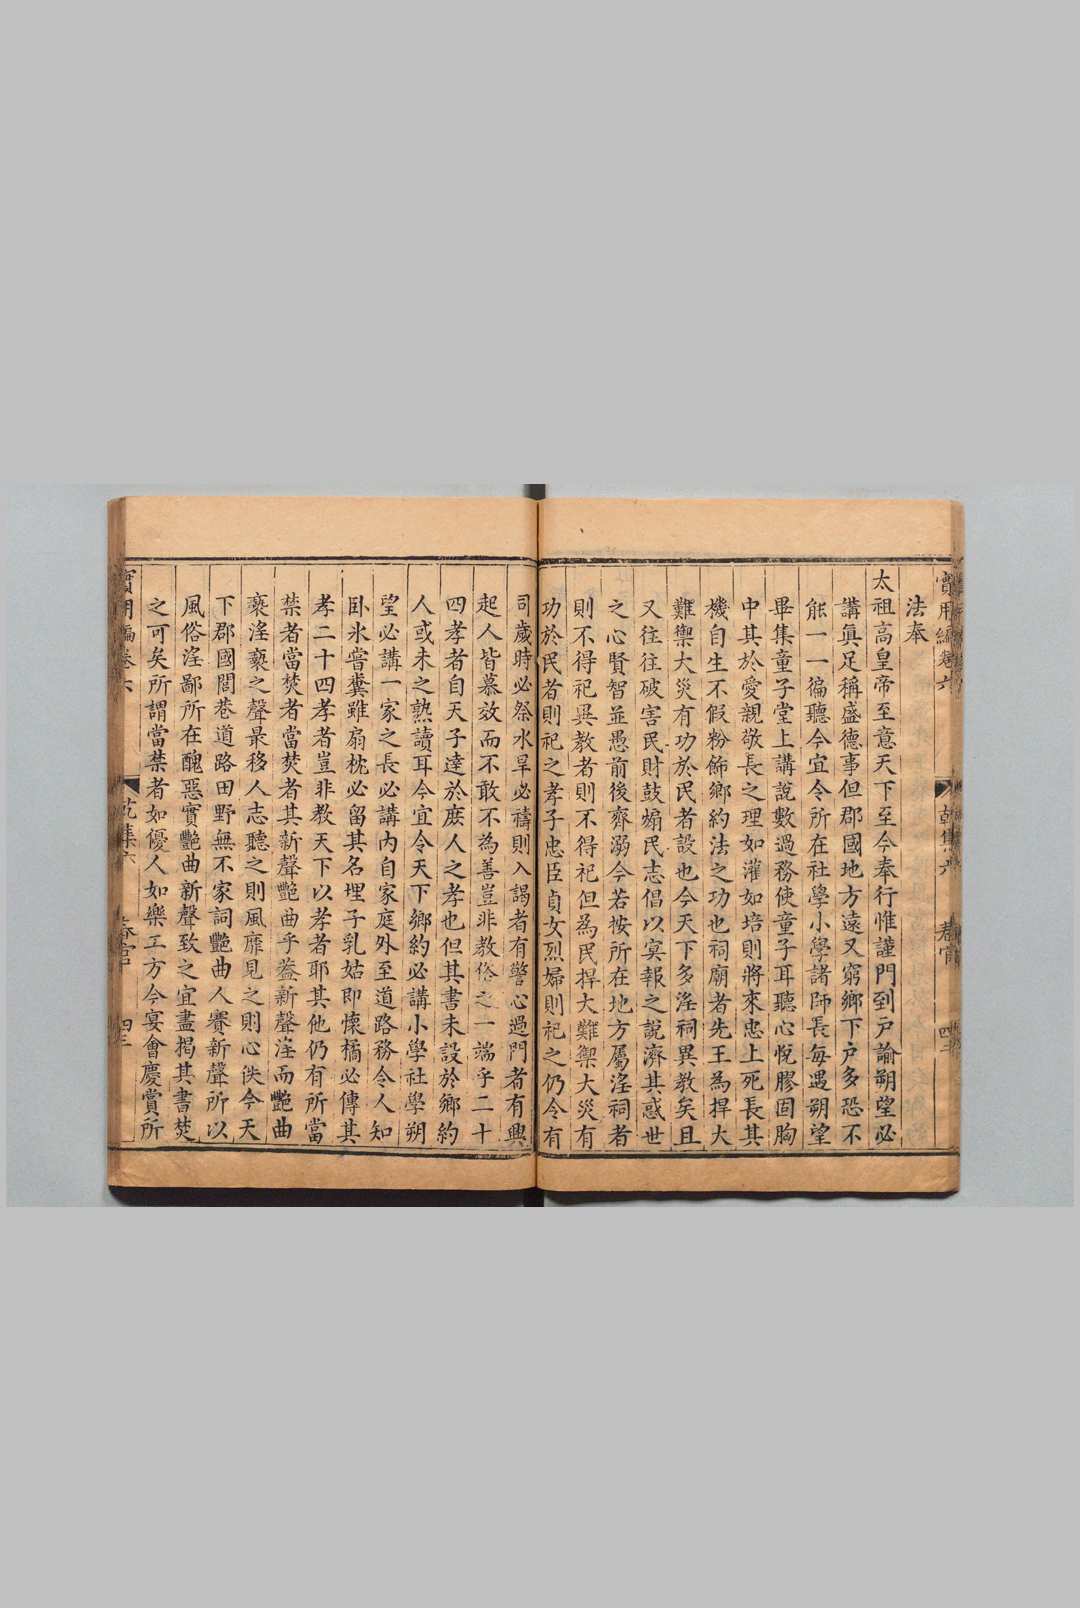 實用編卷六 乾集六 春官 四二
法奉
太祖高皇帝至意天下至今奉行惟謹門到戸諭朔望必
講眞足稱盛德事但郡國地方遠又窮鄉下戸多恐不
能一一徧聽今宜令所在社學小學諸師長每遇朔望
畢集童子堂上講說數過務使童子耳聽心悅膠固胸
中其於愛親敬長之理如灌如培則將來忠上死長其
機自生不假粉飾鄉約法之功也祠廟者先王為捍大
難禦大災有功於民者設也今天下多淫祠異教矣且
又往往破害民財鼓煽民志倡以冥報之說濟其惑世
之心賢智並愚前後齊溺今若按所在地方屬淫祠者
則不得祀異教者則不得祀但為民捍大難禦大災有
功於民者則祀之孝子忠臣貞女烈婦則祀之仍令有
司歲時必祭水旱必禱則入謁者有警心過門者有興
起人皆慕效而不敢不為善豈非教俗之一端乎二十
四孝者自天子達於庶人之孝也但其書未設於鄉約
人或未之熟讀耳今宜令天下鄉約必講小學社學朔
望必講一家之長必講內自家庭外至道路務令人知
臥氷嘗糞雖扇枕必留其名埋子乳姑即懷橘必傳其
孝二十四孝者豈非教天下以孝者耶其他仍有所當
禁者當焚者當焚者其新聲艷曲乎葢新聲淫而艷曲
褻淫褻之聲最移人志聽之則風靡見之則心佚今天
下郡國閭巷道路田野無不家詞艷曲人賽新聲所以
風俗淫鄙所在醜惡實艷曲新聲致之宜盡揭其書焚
之可矣所謂當禁者如優人如樂工方今宴會慶賞所
實用編卷六 乾集六 春官 四三